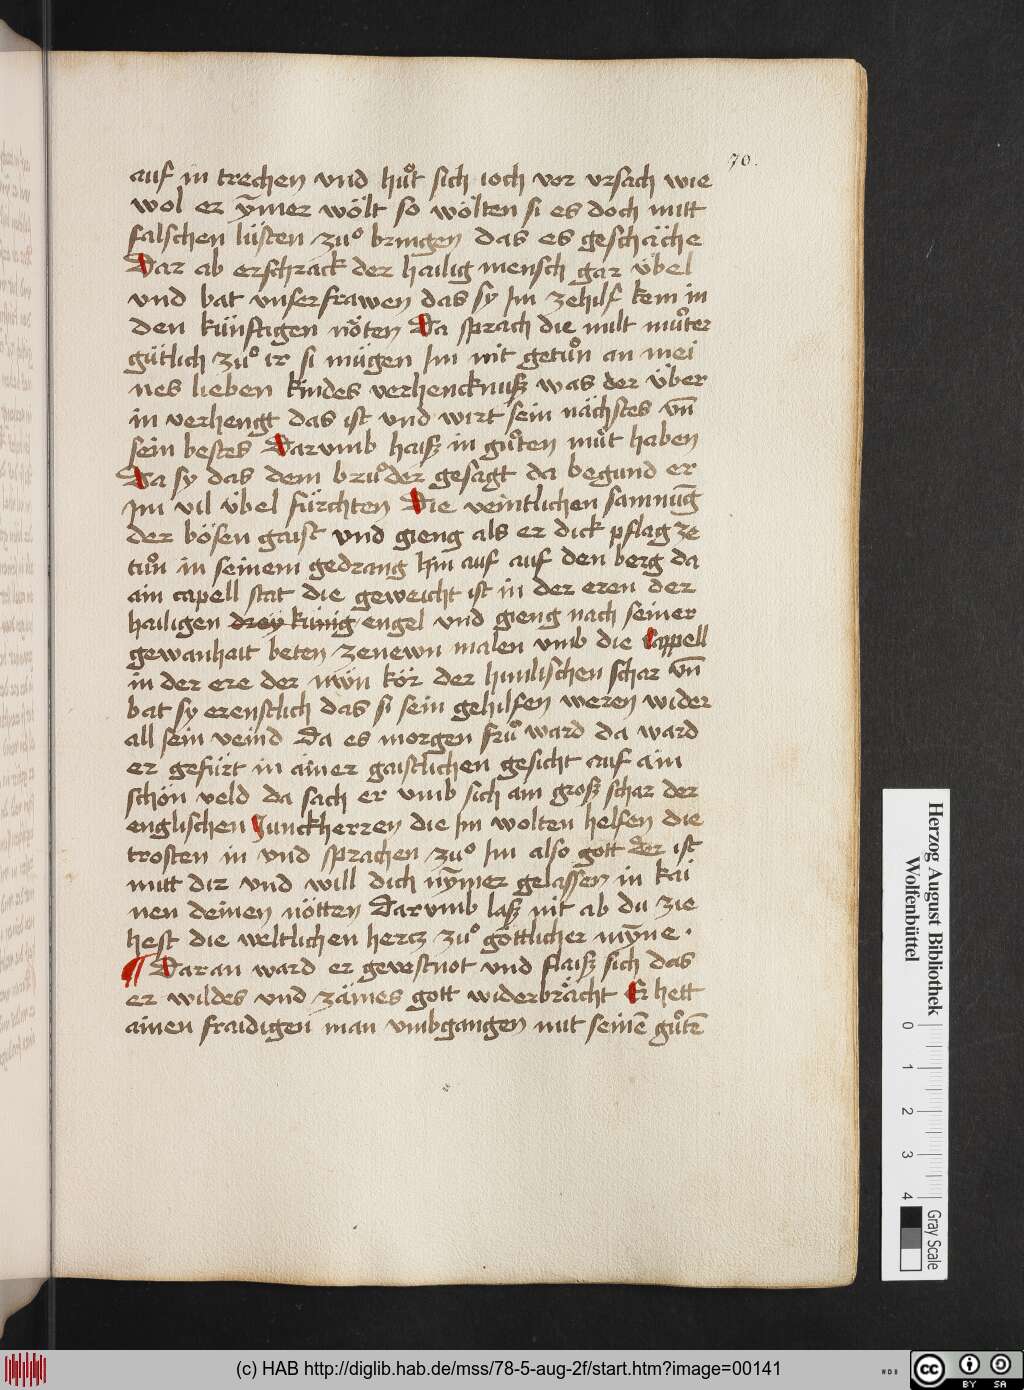 70.
auf in trechen vnd huͦt sich ioch vor vrsach wie
wol er ỹmer wölt so wölten si es doch mitt
falschen lüsten zuͦ bringen das es geschäche
Dar ab erschrack der hailig mensch gar übel
vnd bat vnser frawen das sy Im ze hilf kem in
den künftigen nöten Da sprach die milt muͦter
gütlich zuͦ ir si mügen Im nit getuͦn an mei
nes lieben kindes verhencknusz was der über
in verhengt das ist vnd wirt sein nächstes vn̄
sein bestes Darvmb haisz in guͦten muͦt haben
Da sy das dem bruͦder gesagt da begund er
Im vil übel fürchten Die veintlichen samnūg
der bösen gaist vnd gieng als er dick pflag ze
tuͦn in seinem gedrang hin auf auf den berg da
ain capell stat die geweicht ist in der eren der
hailigen drey künig engel vnd gieng nach seiner
gewanhait beten ze newn malen vmb die Cappell
in der ere der nwün kör der himlischen schar vn̄
bat sy erenstlich das si sein gehilfen weren wider
all sein veind Da es morgen fruͦ ward da ward
er gefürt in ainer gaistlichen gesicht auf ain
schön veld da sach er vmb sich ain grosz schar der
englischen Junckherren die Im wolten helfen die
trosten in vnd sprachen zuͦ Im also gott der ist
mitt dir vnd will dich nỹmer gelassen in kai
nen deinen nötten Darvmb lasz nit ab du zie
hest die weltlichen hercz zuͦ göttlicher mỹne .
¶ Daran ward er gevestnot vnd flaisz sich das
er wildes vnd zämes gott widerbrächt Er hett
ainen fraidigen man vmbgangen mit seinē guͦtē
Herzog August Bibliothek
Wolfenbüttel
0 1 2 3 4
Gray Scale
(c) HAB http://diglib.hab.de/mss/78-5-aug-2f/start.htm?image=00141
WDB
cc BY SA